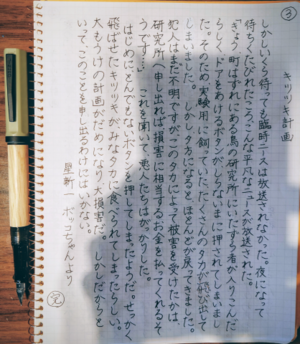 ③
キツツキ計画
しかしいくら待っても臨時ニュースは放送されなかった。夜になって
待ちくたびれたころこんな平凡なニュースが放送された。
「きょう町はずれにある鳥の研究所にいたずら者が入りこんだ
らしく、ドアをあけるボタンがしらないまに押されてしまいまし
た。そのため実験用に飼っていたたくさんのタカが飛び出して
しまいました。しかし夕方になるとほとんどが戻ってきました。
犯人はまだ不明ですがこのタカによって被害を受けたかたは
研究所へ申し出れば損害に相当するお金を払ってくれるそ
うです…」これを聞いて、悪人たちはがっかりした。
はじめにとんでもないボタンを押してしまったようだ。せっかく
飛ばせたキツツキがみなタカに食べられてしまったらしい。
大もうけの計画がだめになり大損害だ。しかしだからと
いって、このことを申し出るわけにはいかない。
星新一 ボッコちゃんより 完